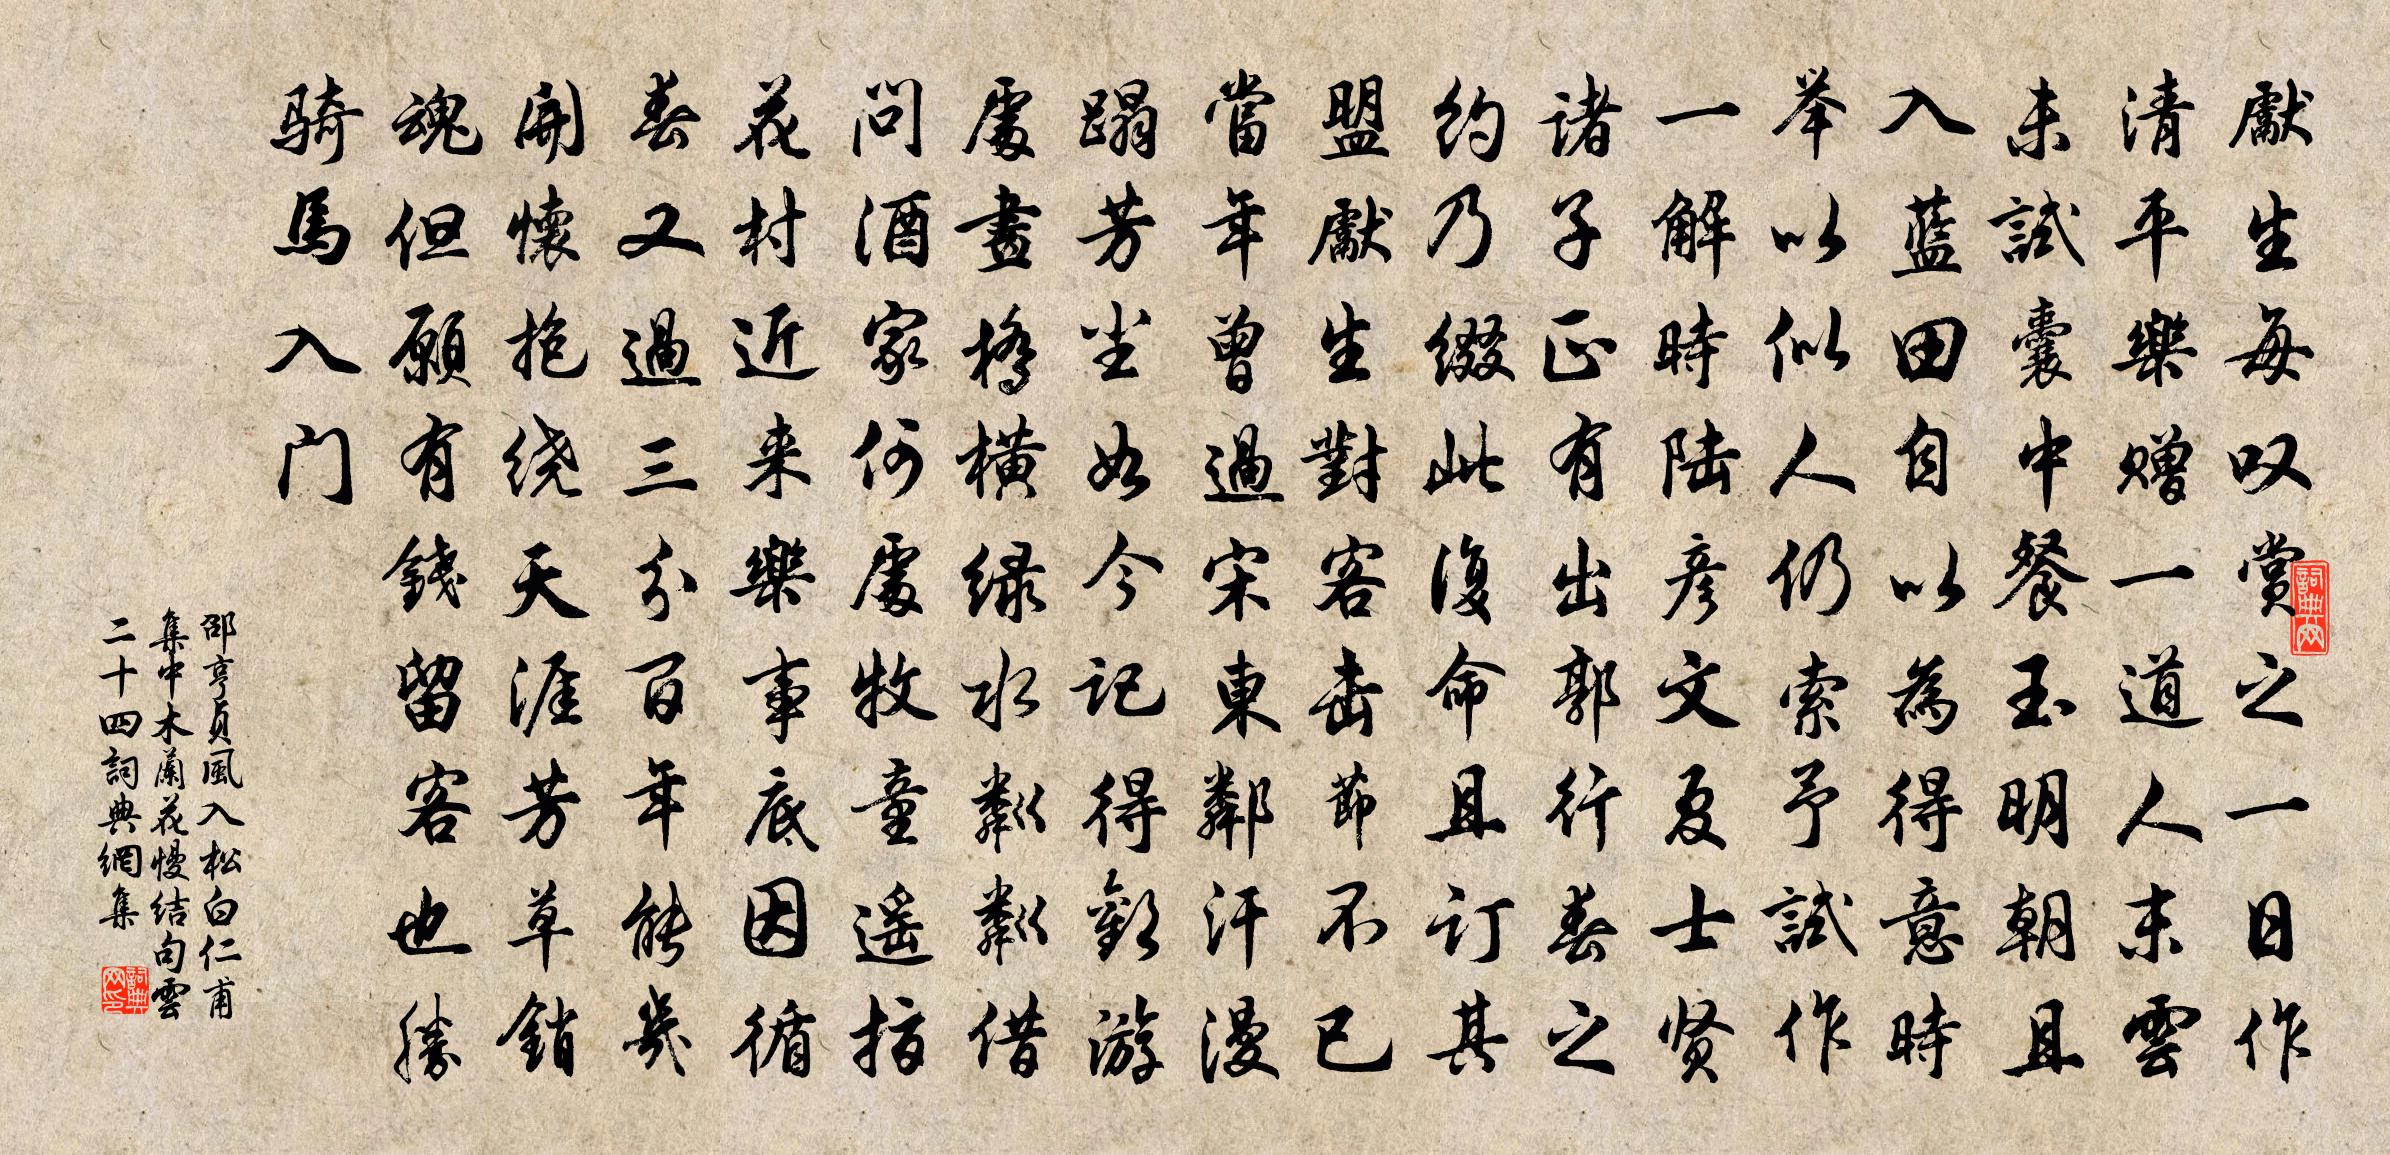 獻生每叹赏之一日作
清平樂赠一道人末雲
未試囊中餐玉明朝且
入藍田自以為得意時
举以似人仍索予試作
一解時陆彦文夏士贤
诸子正有出郭行春之
约乃缀此復命且订其
盟獻生對客击節不已
當年曾過宋東鄰汗漫
蹋芳尘如今记得歡游
處畫橋橫绿水粼粼借
问酒家何處牧童遥指
花村近来樂事底因循
春又過三分百年能幾
開懷抱绕天涯芳草銷
魂但願有錢留客也勝
骑馬入门
邵亨貞風入松白仁甫
集中木蘭花慢结句雲
二十四詞典網集
詞典网
詞典网印